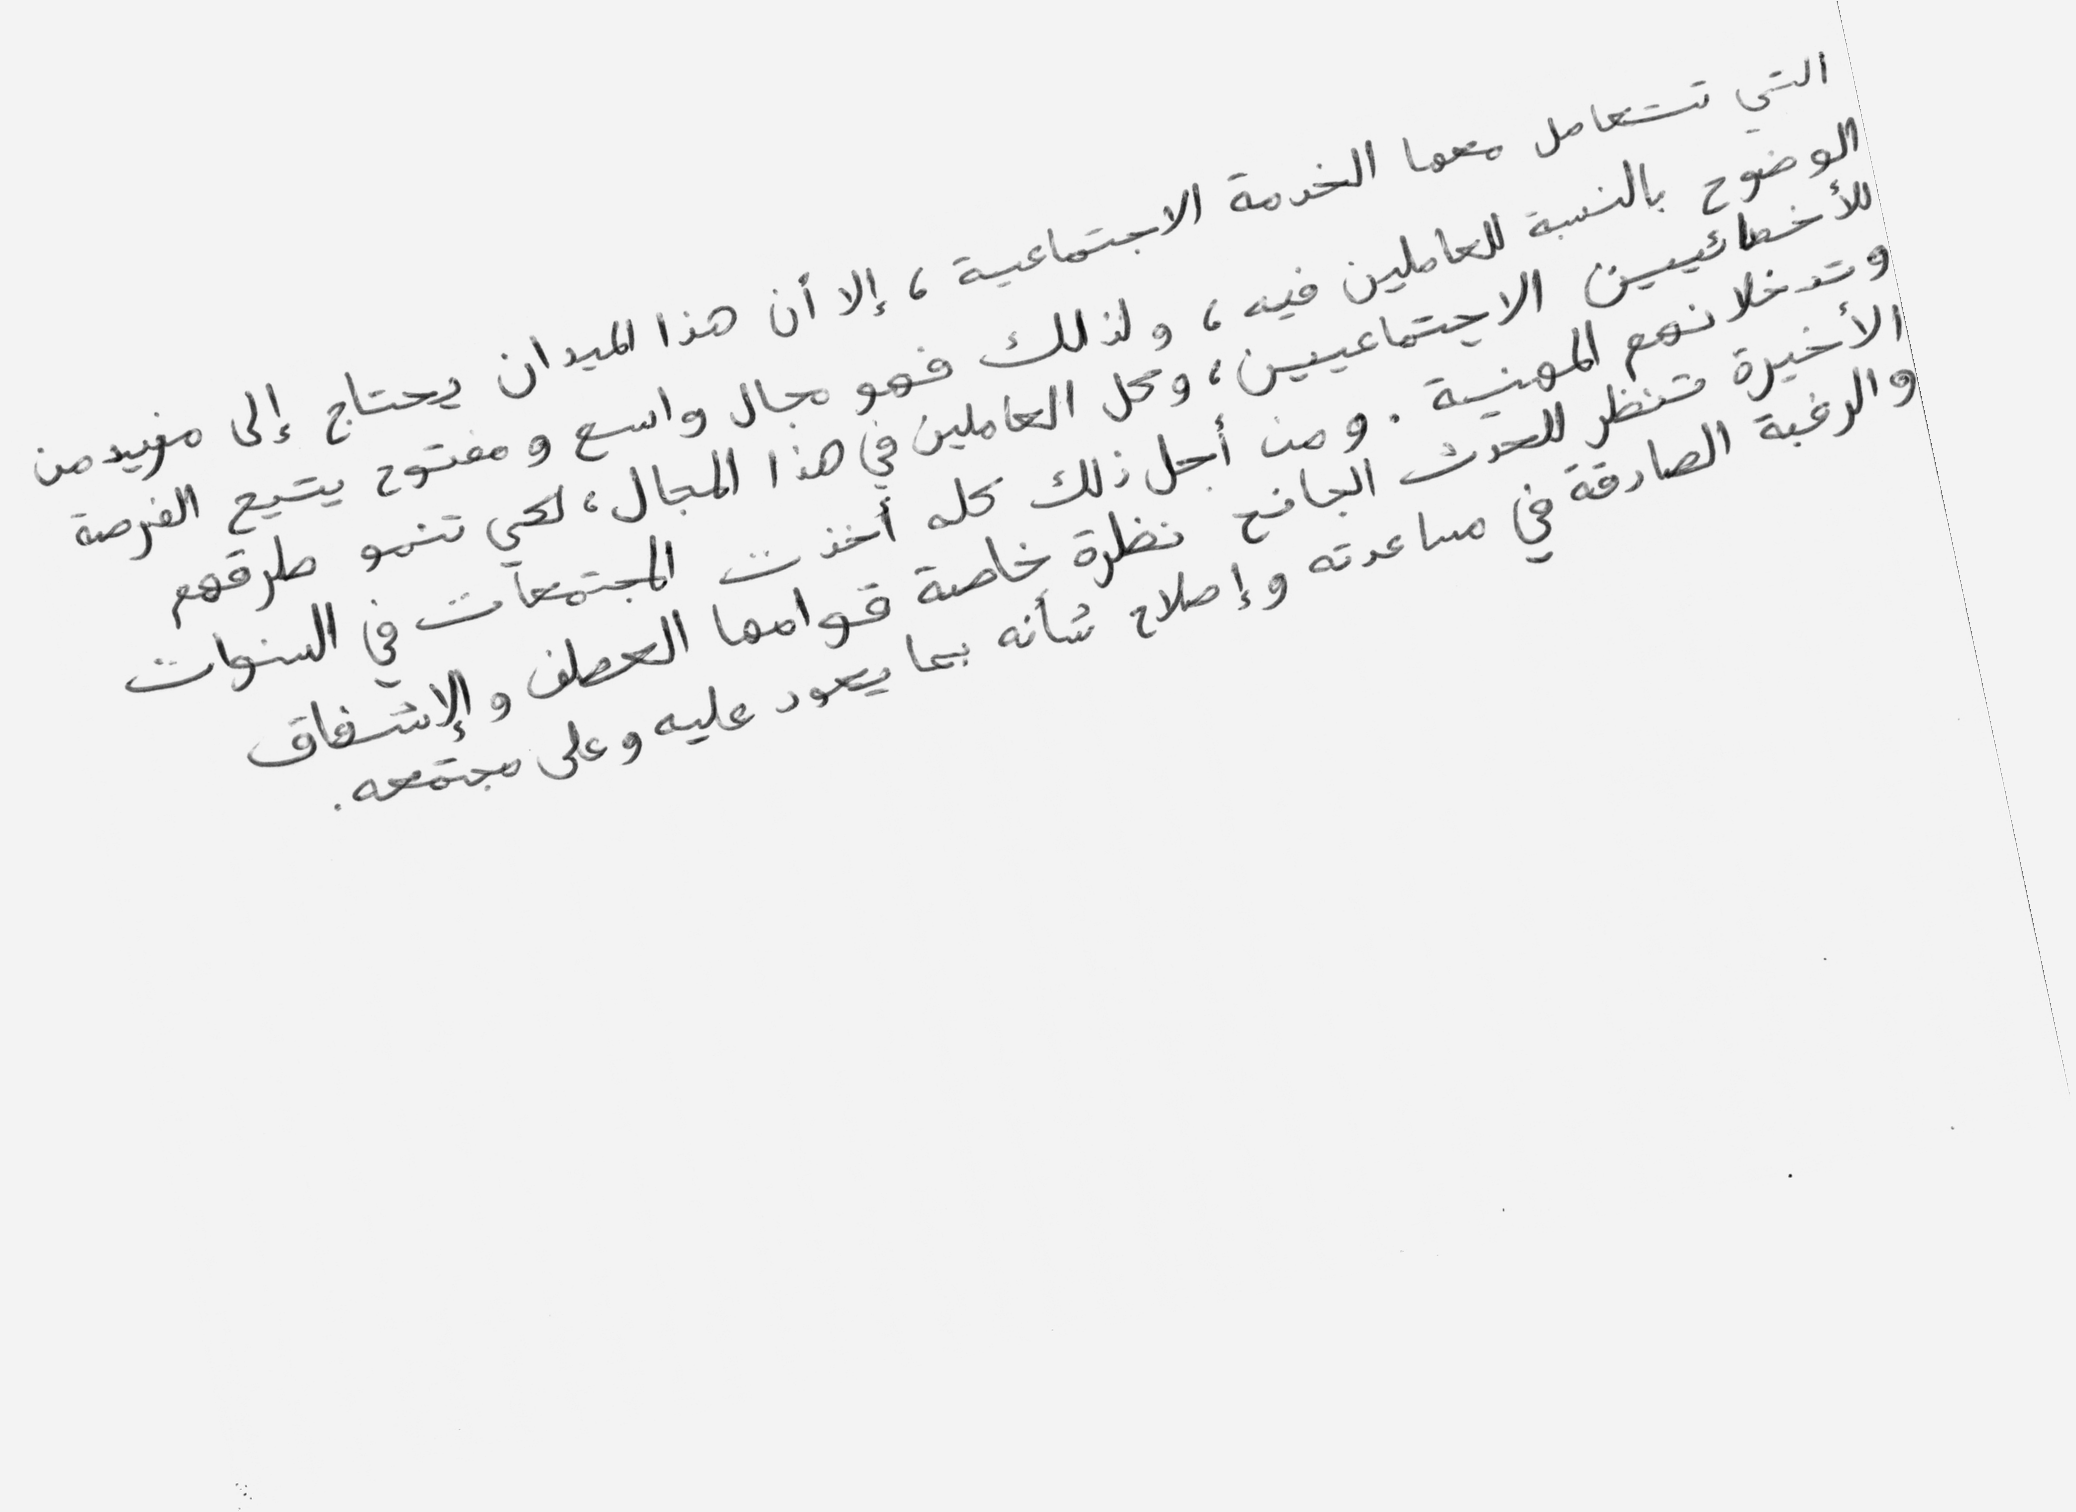 التي تستعامل معها الخدمة الاجتماعية ، إلا أن هذا الميدان يحتاج إلى مزيد من
الوضوح بالنسبة للعاملين فيه ، ولذلك فهو مجال واسع ومفتوح يتيح الفرصة
للأخصائيين الاجتماعيين ، وكل العاملين في هذا المجال ، لكي تنمو طرقهم
وتدخلاتهم المهنية . ومن أجل ذلك كله أخذت المجتمعات في السنوات
الأخيرة تنظر للحدث الجانح نظرة خاصة قوامها العطف والإشفاق
والرغبة الصادقة في مساعدته وإصلاح شأنه بما يعود عليه وعلى مجتمعه .